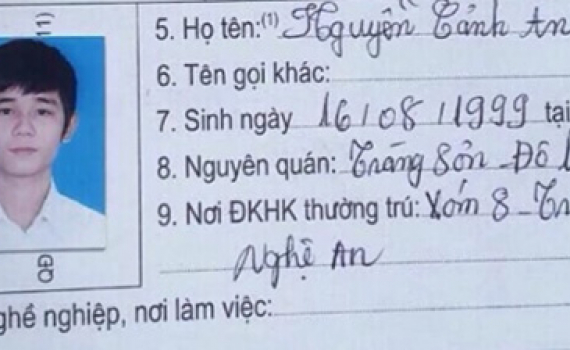 5. Họ tên:(1) Nguyễn Cảnh An
6. Tên gọi khác:
7. Sinh ngày 16/08/1999 tại
8. Nguyên quán: Tràng Sơn - Đô
9. Nơi ĐKHK thường trú: Xóm 8 -
Nghệ An
nghề nghiệp, nơi làm việc: